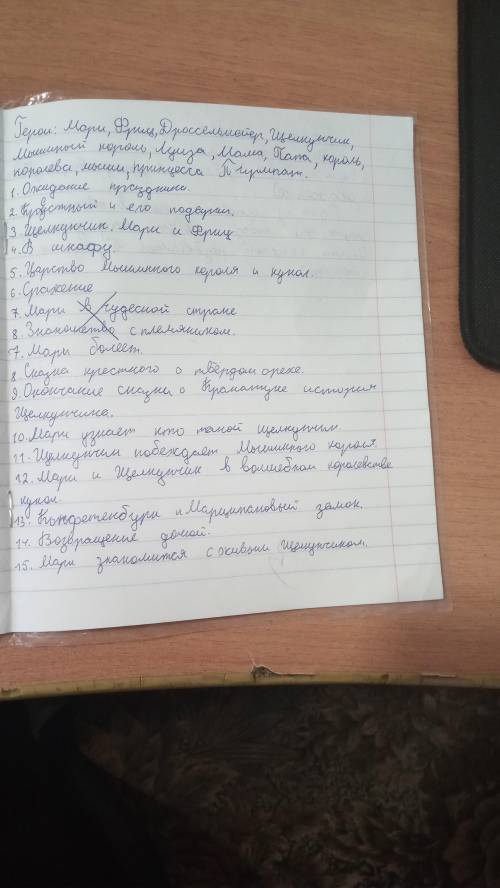 Герои: Мари, Фриц, Дроссельмейер, Щелкунчик,
Мышиный король, Луиза, Мама, Папа, король,
королева, мыши, принцесса Пирлипат.
1. Ожидание праздника.
2. Крёстный и его подарки.
3. Щелкунчик, Мари и Фриц
4. В шкафу.
5. Царство Мышиного короля и кукол.
6. Сражение
7. Мари в чудесной стране
8. Знакомство с племянником.
7. Мари болеет.
8 Сказка крестного о твёрдом орехе.
9. Окончание сказки о Кракатуке история
Щелкунчика.
10. Мари узнает кто такой щелкунчик.
11. Щелкунчик побеждает Мышиного короля
12. Мари и Щелкунчик в волшебном королевстве
кукол.
13. Конфетенбург и Марципановый замок.
14. Возвращение домой.
15. Мари знакомится с живым Щелкунчиком.